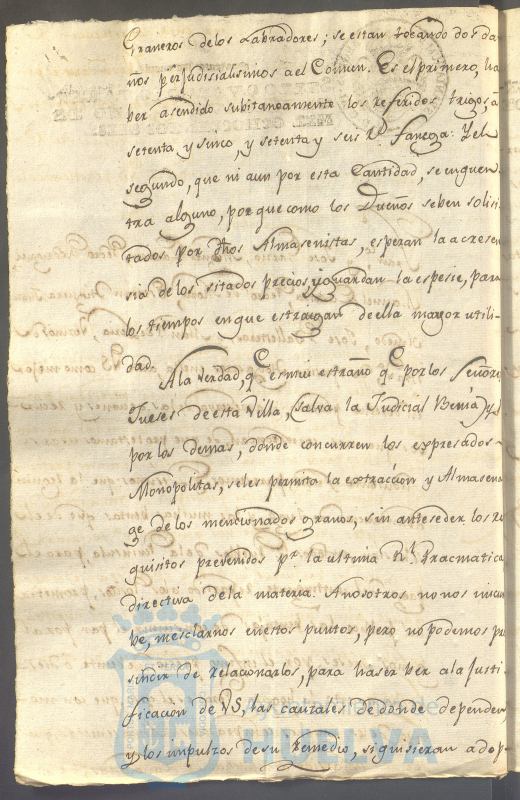 Graneros delos Labradores; se estan tocando dos da
ños perjudisialisimos a el Comun. Es el primero, ha
ver asendido subitaneamente los referidos trigos, â
setenta y sinco, y setenta y seis rs. fanega: Y el
segundo, que ni aun por esta Cantidad, se encuen
tra alguno, porque como los Dueños se ben solisi
tados por dhos Almasenistas, esperan la acresen
sia de los sitados precios, y guardan la espesie, para
los tiempos en que estraigan de ella mayor utili-
dad.
A la verdad, qe. es mui estraño qe. por los Señores
Jueses de esta Villa, (salva la Judicial Benia) y
por los demas, donde concurren los expresados
Monopolitas, seles permita la extracción y Almasena
ge de los mencionados granos, sin anteseder los re
quisitos prevenidos pr. la ultima Rl. Pracmatica
directiva dela materia. Anosotros no nos incum
be, mesclarnos en estos puntos, pero no podemos pre
sindir de relacionarlos, para haser ver ala Justi
ficacion de VS, las causales de donde dependen
y los impulzos de su Remedio, si quisieran adop
Ayuntamiento de
HUELVA